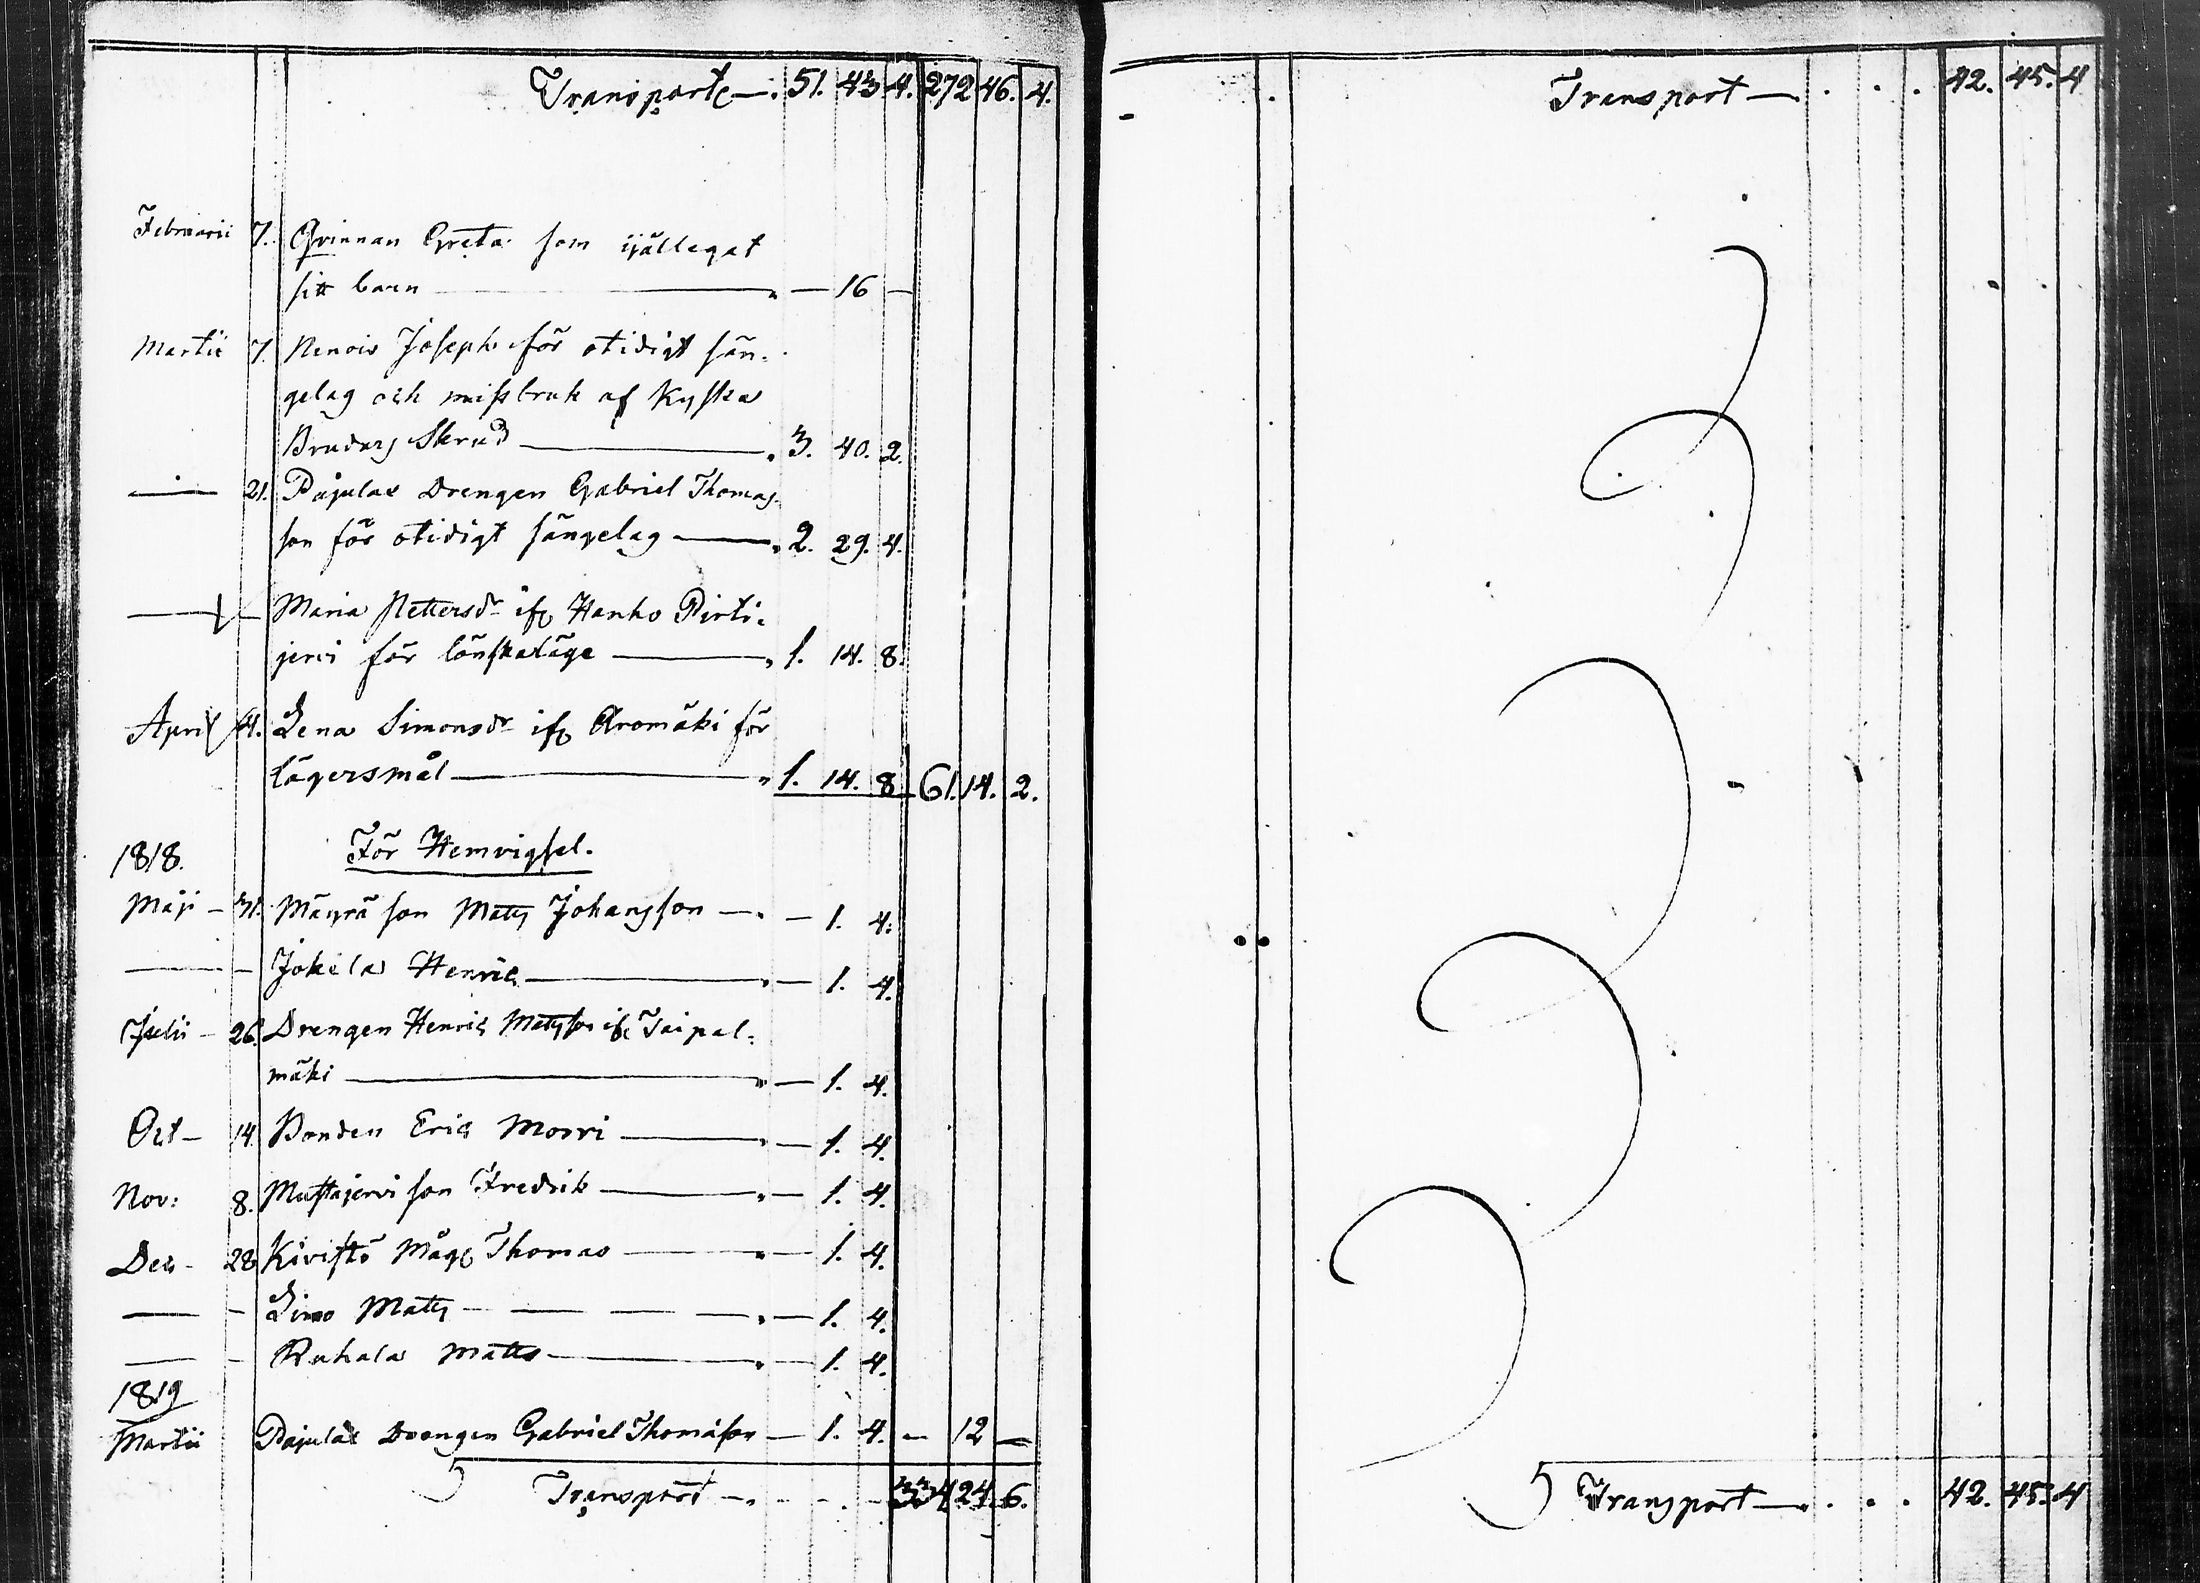 Transporte — . 51. 43 4. 272 46. 4.
Februarii 7. Qvinnan Greta som ihjällegat
sitt barn — . — 16 —
Martii 7. Nenois Joseph för otidigt sän-
gelag och missbruk af Kyska
Brudars Skrud — . 3. 40. 2.
— 21. Pajulax Drengen Gabriel Thomas-
son för otidigt sängelag — . 2. 29. 4.
— — Maria Pettersdr ifr Hanho Pirti-
jervi för lönskaläge — . 1. 14. 8.
April 4. Lena Simonsdr ifr Aromäki för
lägersmål — . 1. 14. 8 61. 14. 2.
1818. För Hemvigsel.
Maji — 31. Mäyrä son Mats Johansson — . — 1. 4.
— — Jokela Henric — . — 1. 4.
Julii — 26. Drengen Henric Matsson ifr Taipal-
mäki — . — 1. 4.
Oct — 14. Bonden Eric Morri — . — 1. 4.
Nov: 8. Mustajervi son Fredrik — . — 1. 4.
Dec — 28 Kivistö Mågr Thomas — . — 1. 4.
— — Simo Mats — — — — . — 1. 4.
— — Ruhala Matts — . — 1. 4.
1819
Martii Pajulax Drengen Gabriel Thomasson — 1. 4. — 12 —
Transport — . 334 24. 6.
Transport — . . . . 42. 45. 4
Transport — . . . . 42. 45. 4